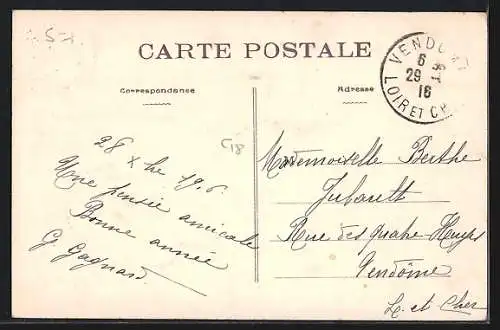 CARTE POSTALE
Correspondance
Adresse
VENDOME
6
29
16
LOIR ET CH
C18
28 Xbre 1916.
Une pensée amicale
Bonne année
G. Gagnard
Mademoiselle Berthe
Jubault
Rue des quatre Huyes
Vendôme
L. et Cher